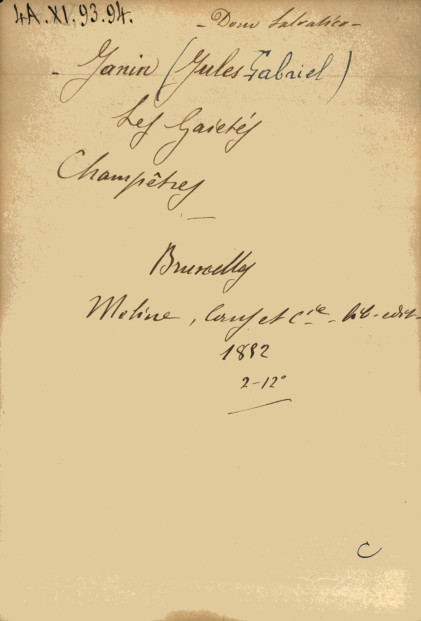 4A.XI.93.94.
- Dom Salvatico -
- Janin (Jules Gabriel)
Les Gaietés
Champêtres
Bruxelles
Meline, Cans et Cie - lib-edit-
1852
2-12°
C